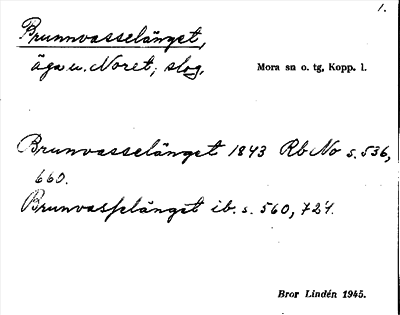 1.
Brunnvasselänget,
äga u. Noret; slog.
Mora sn o. tg, Kopp. l.
Brunvasselänget 1843 Rb No s. 536,
660.
Brunvasslänget ib. s. 560, 724.
Bror Lindén 1945.